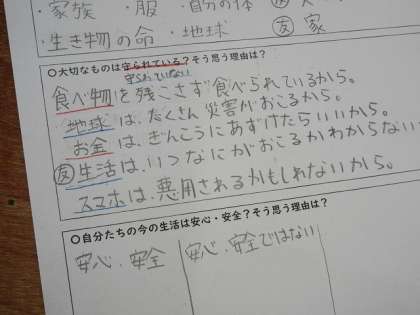 ・家族 ・服 ・自分の体 友
・生き物の命 ・地球 友 家
○大切なものは守られている？そう思う理由は？
守られていない
食べ物を残こさず食べられているから。
地球は、たくさん災害がおこるから。
お金は、ぎんこうにあずけたらいいから。
友生活は、いつなにがおこるかわからない
スマホは、悪用されるかもしれないから。
○自分たちの今の生活は安心・安全？そう思う理由は？
安心、安全
安心、安全ではない